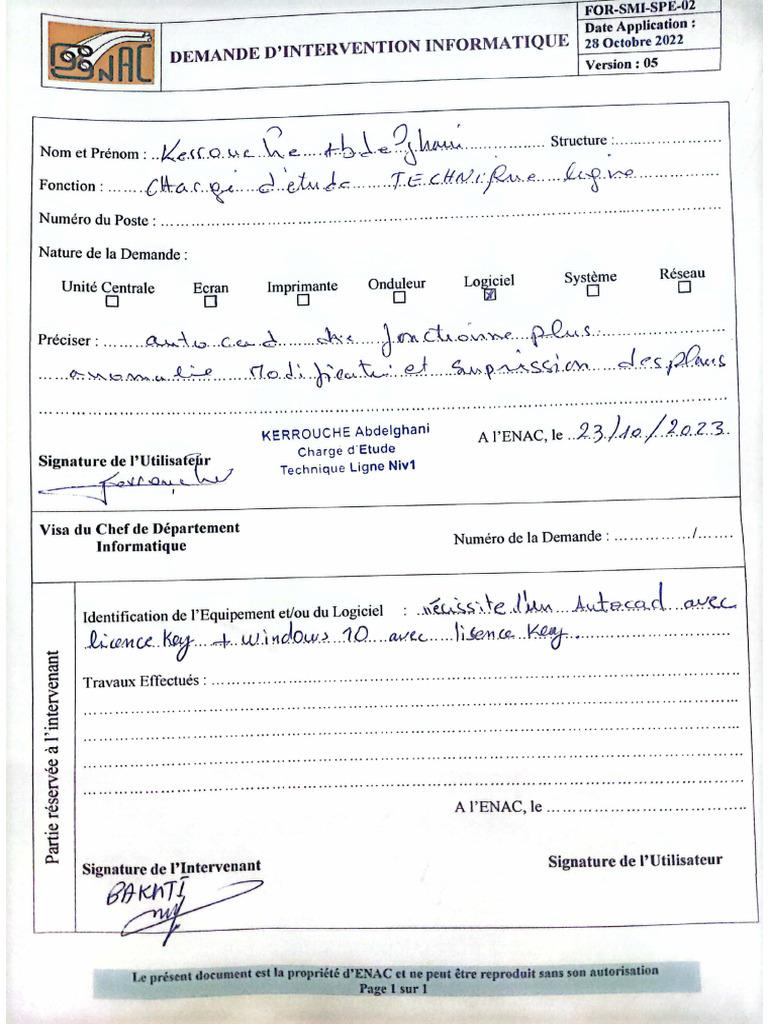 ENAC
DEMANDE D'INTERVENTION INFORMATIQUE
FOR-SMI-SPE-02
Date Application :
28 Octobre 2022
Version : 05
Nom et Prénom : Kerrouche Abdelghani Structure :
Fonction : CHargé d'étude TECHNique ligne
Numéro du Poste :
Nature de la Demande :
Unité Centrale Ecran Imprimante Onduleur Logiciel Système Réseau
Préciser : autocad fonctionne plus
anomalie Modification et supression des plans
KERROUCHE Abdelghani
Charge d'Etude
Technique Ligne Niv1
A l'ENAC, le 23/10/2023
Signature de l'Utilisateur
Kerrouche
Visa du Chef de Département
Informatique
Numéro de la Demande : /
Partie réservée à l'intervenant
Identification de l'Equipement et/ou du Logiciel : nécissite l'un Autocad avec
licence Key + windows 10 avec lisence Key.
Travaux Effectués :
A l'ENAC, le
Signature de l'Intervenant
Signature de l'Utilisateur
BAKATI
Le présent document est la propriété d'ENAC et ne peut être reproduit sans son autorisation
Page 1 sur 1